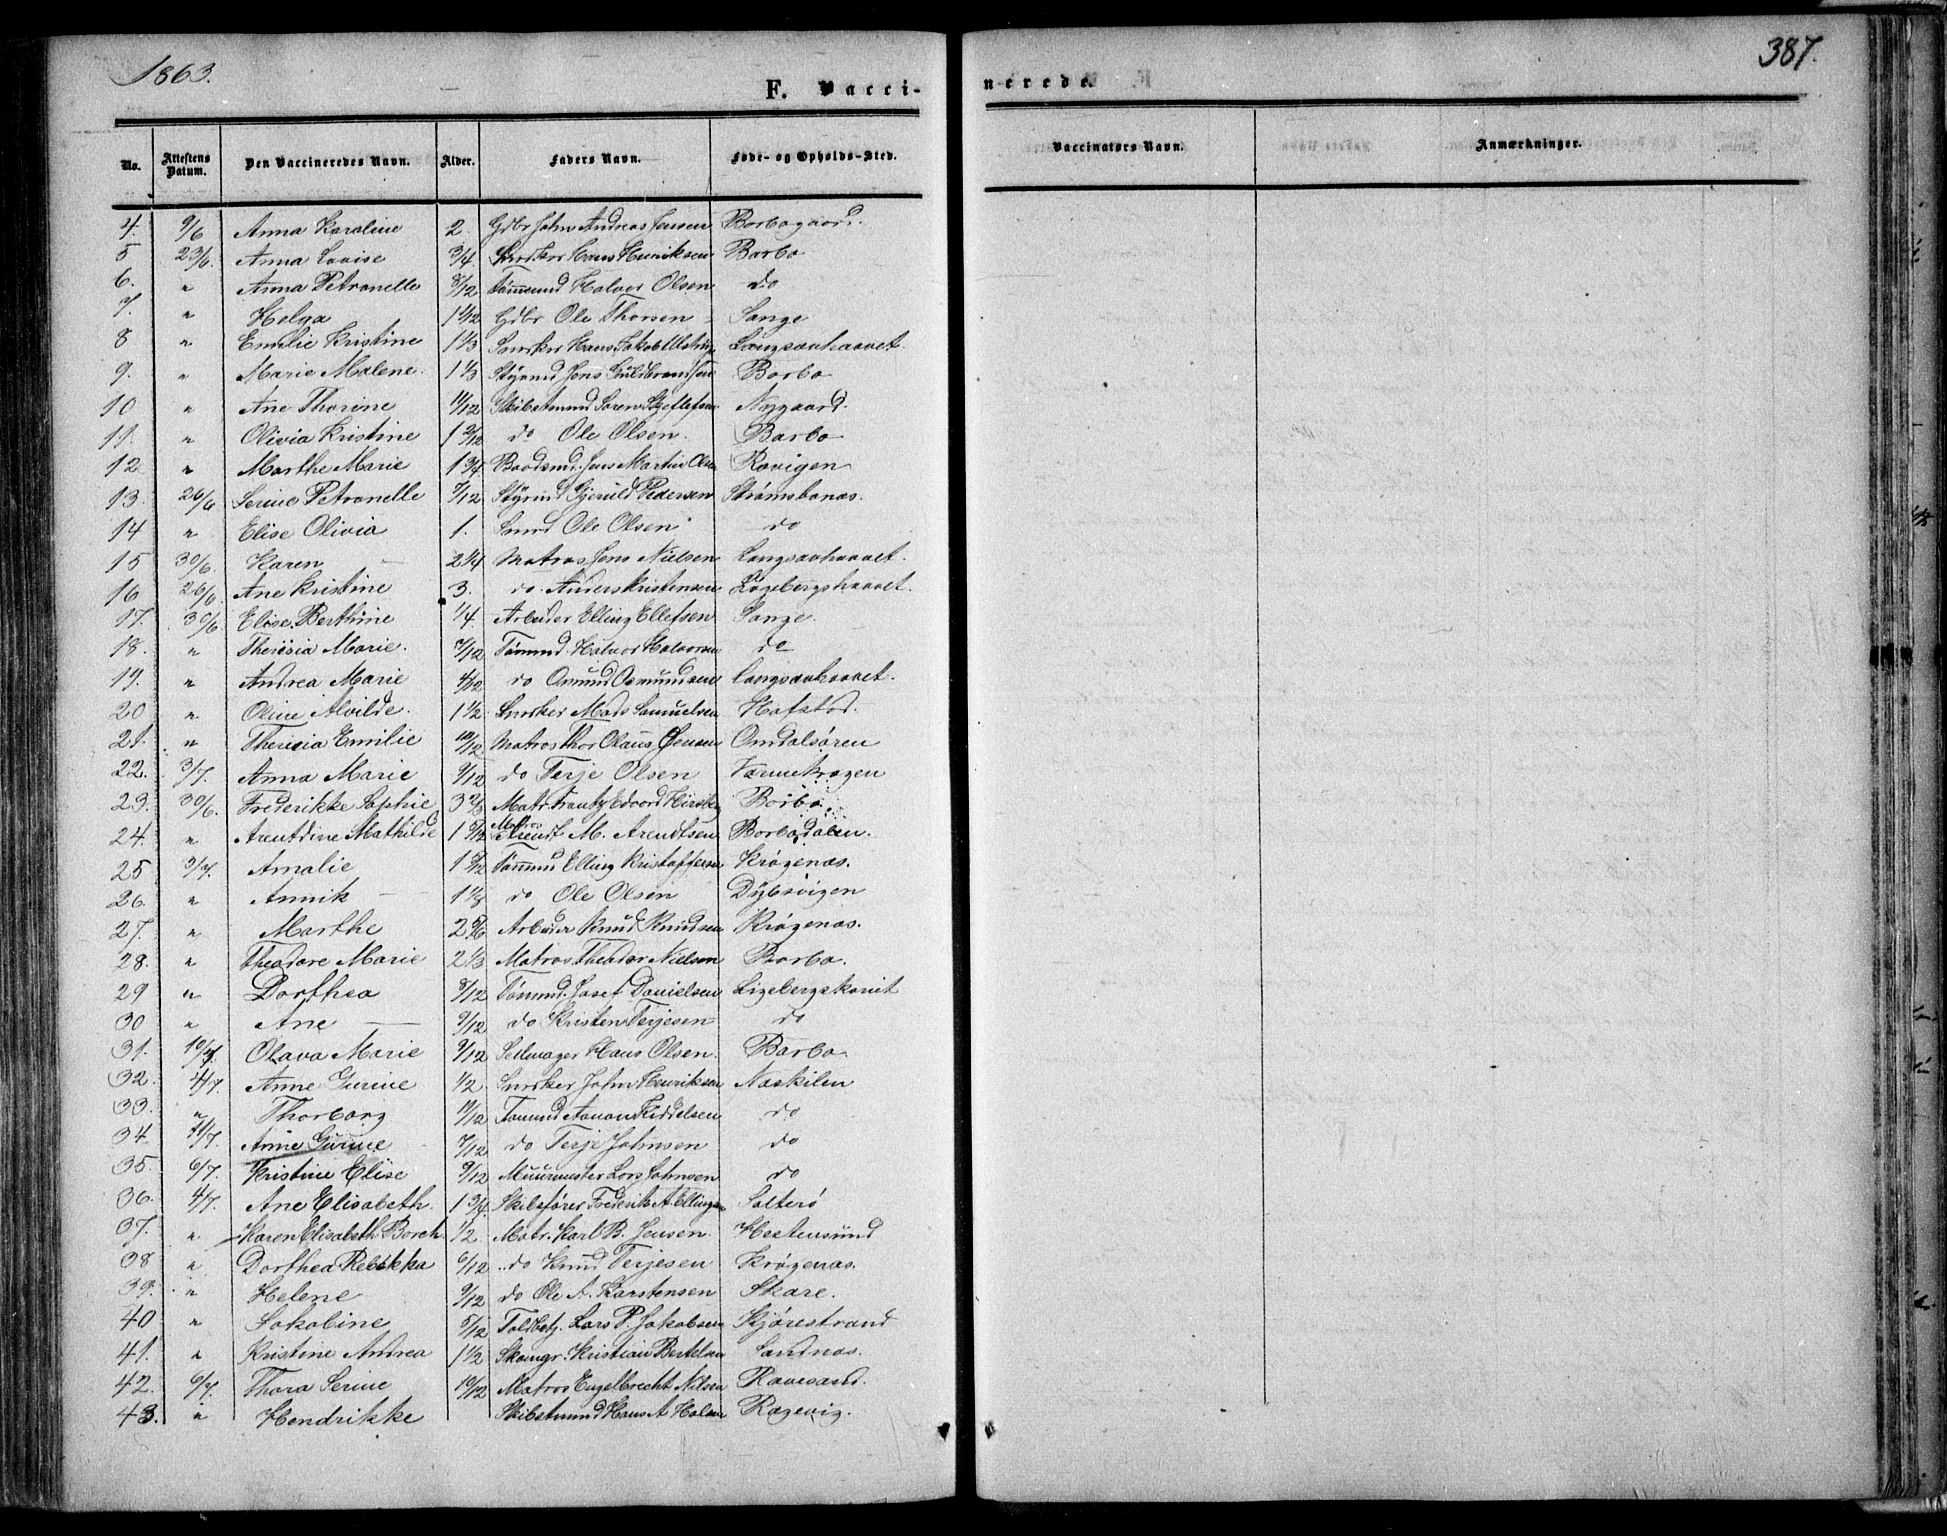 1863.
387.
F. Vacci-
nerede.
No. Attestens Datum. Den Vaccineredes Navn. Alder. Faders Navn. Føde- og Opholds-Sted. Vaccinatørs Navn. Anmærkninger.
4. 9/6 Anna Karoline 2. Gdbr John Andreas Jensen Barbogaard.
5 23/6. Anna Lovise 3/4 Snedker Hans Henriksen Barbo
6. " Anna Petronelle 8/12 Tømmermd Halvor Olsen do
7. " Helga 1 1/12 Gdbr Ole Thorsen Sange
8 " Emilie Kristine 1 1/3 Snedker Hans Jakob Langsævhaavet.
9. " Marie Malene. 1 1/3 Styrmd Jens Guldbrandsen Barbo
10 " Ane Thorine 11/12 Skibstmmd Søren Nygaard.
11. " Olivia Kristine 1 do Ole Olsen. Barbo
12 " Marthe Marie 1 3/4 Baadsmd. Jens Martin Olsen Ravigen
13. 26/6 Serine Petronelle 7/12 Styrmd Gjeruld Pedersen Strømsbonæs.
14 " Elise Olivia 1. Ole Olsen do
15 30/6. Karen — 2 1/4 Matros Jens Nielsen Langsævhaavet.
16 26/6. Ane Kristine 3. do. Anders Kristensen Løgebergshaavet.
17. 30/6 Elise Berthine 1/4 Arbeider Elling Ellefsen Sange.
18. " Theresia Marie. Tømmd. Halvor Halvorsen do
19. " Andrea Marie 4/12 do Osmund Osmundsen Langsævhaavet.
20 " Oline Alvilde. 1 1/2 Snedker Mads Samuelsen Hafstad.
21. " Theresia Emilie 10/12 Matros Thor Olaus Jensen Omdalsøren
22. 3/7. Anna Marie 9/12 do Terje Olsen Varmekrogen
23. 30/6. Frederikke Sophie 3 2/3 Matr. Frantz Edvard Barbo.
24. " Arentdine Mathilde 1 5/12 Matros Arendt M. Arendtsen Barbodalen.
25 3/7. Amalie 1 Tømmd Elling Kristoffersen Krøgenæs.
26. " Annik — 1 1/3 do Ole Olsen Dybsvigen
27. " Marthe 2 5/6 Arbeider Knud Knudsen Krøgenæs.
28. " Theodore Marie 2 1/3 Matros Theodor Nielsen Barbo.
29 " Dorthea 8/12 Tømmd. Josef Danielsen Ligebergskaret
30 " Ane — 9/12 do Kristen Terjesen do
31. 10/7. Olava Marie 9/12 Seilmager Hans Olsen. Barbo.
32. 4/7. Anne Gurine 1/2 Snedker John Henriksen Naskilen
33. " Thorborg 11/12 Tømmd Aanon do
34. 11/7. Anne Gurine 7/12 do Terje Johnsen do
35. 6/7. Kristine Elise 9/12 Muurmester Lars Johnsen do
36. 4/7. Ane Elisabeth. 1 3/4 Skibsfører Frederik A. Ellingsen Salterø
37. " Karen Elisabeth Borch. 1/2 Matr. Karl B. Jensen. Hestensund
38 " Dorthea Rebekka 6/12 do Knud Terjesen Krøgenæs.
39. " Helene 9/12 do Ole A. Karstensen Skare.
40 " Jakobine 5/12 Toldbetj. Lars P. Jakobsen Kjørestrand
41. " Kristine Andrea 1 1/2 Skomgr. Kristian Bertelsen Sandnæs.
42. 6/7. Thora Serine 10/12 Matros Engelbrecht Nilsen Ravesand.
43. " Hendrikke Skibstmmd Hans A Holm Rægevig.